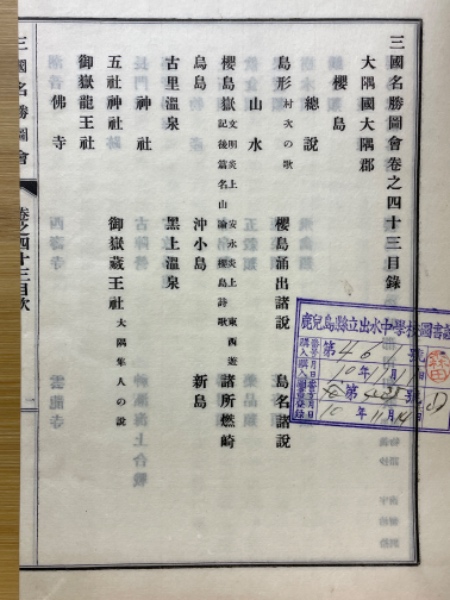 三國名勝圖會卷之四十三目錄
大隅國大隅郡
櫻島
總說
島形 村次の歌 櫻島涌出諸說 島名諸說
山水
櫻島嶽 文明炎上 安永炎上 東西遊記後篇名山論 櫻島詩歌 諸所燃崎
鳥島 沖小島 新島
古里溫泉 黑上溫泉
神社
五社神社 御嶽蔵王社 大隅隼人の說
御嶽龍王社
佛寺
三國名勝圖會
卷之四十三目次
一
鹿兒島縣立出水中學校圖書
第461號
10年11月1日
第
號
10年11月14日